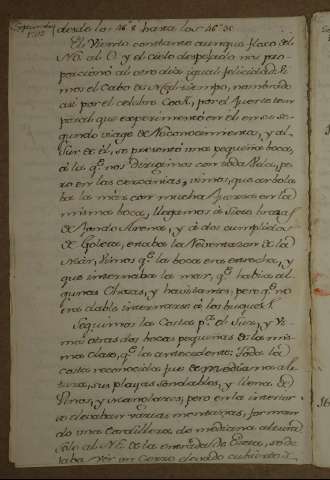 desde los 46°8 hasta los 46°30
El Viento constante aunque flaco del
NO. al O. y el cielo despejado nos pro-
porcionó al otro dia igual felicidad:
mos el Cabo de Mal tiempo, nombrado
asi por el celebre Cook, por el fuerte tem-
poral que experimentó en el en su se-
gundo viage de Reconocimiento, y al
Sur de él, se presentó una pequeña boca,
á la qe. nos dirigimos con toda vela, pe-
ro en las cercanias, vimos, que arbola-
ba la mar con mucha fuerza en la
misma boca, llegamos á siete brazas
de fondo Arena, y á dos cumplidos
de Goleta, estaba la Reventazon de la
Mar, vimos qe. la boca era estrecha, y
que internaba la mar, qe. habia al-
gunas Chozas, y havitantes, pero qe. no
era dable internarse á los buques.
Seguimos la Costa pa. el Sur, y vi-
mos otras dos bocas pequeñas de la mis-
ma clase, qe. la antecedente: Toda la
costa reconocida fue de mediana al-
tura, sus playas sondables, y llena de
Pinos, y manglares, pero en la interior
se elevaban varias montañas, forman-
do una Cordillera de mediana altura
Solo al NE. de la entrada de Ezeta, se de-
jaba ver un Cerro elevado cubierto de